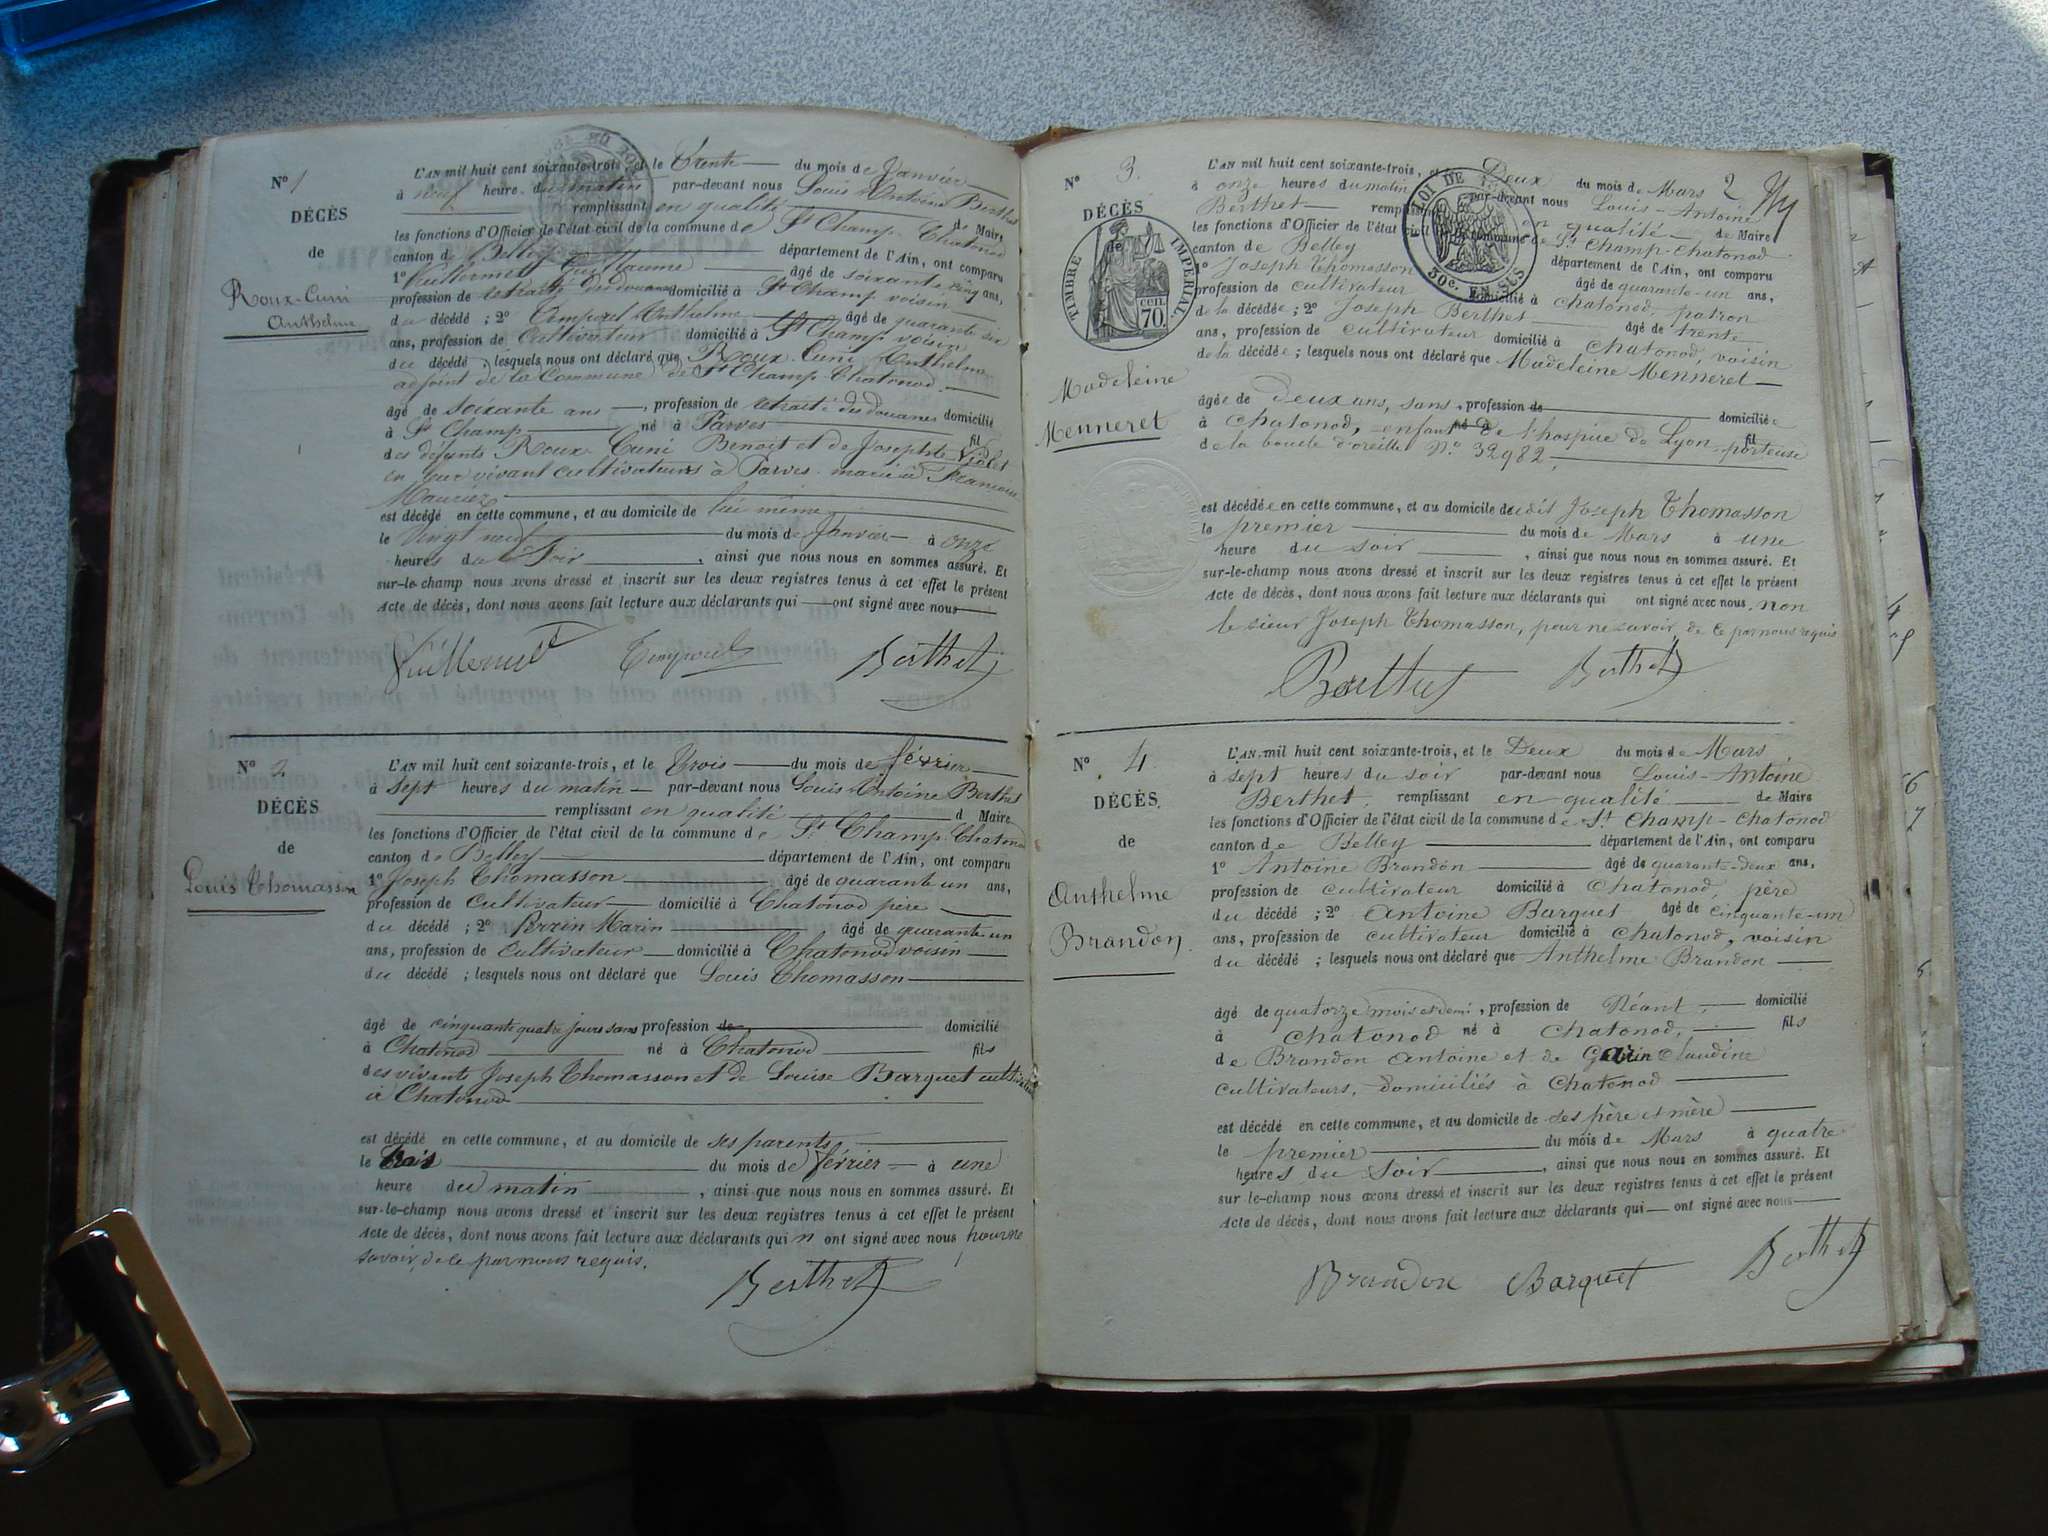 N° 1
DÉCÈS
de
Roux-Cuni
Anthelme
L'AN mil huit cent soixante-trois, et le Trente du mois de Janvier
à neuf heure du matin par-devant nous Louis Antoine Berthet
remplissant en qualité de Maire
les fonctions d'Officier de l'état civil de la commune de St Champ-Chatonod
canton de Belley département de l'Ain, ont comparu
1° Vuillermet Guillaume âgé de soixante cinq ans,
profession de retraité des douanes domicilié à St Champ voisin
du décédé ; 2° Anthelme âgé de quarante six
ans, profession de Cultivateur domicilié à St Champ voisin
du décédé ; lesquels nous ont déclaré que Roux-Cuni Anthelme
adjoint de la Commune de St Champ-Chatonod.
âgé de soixante ans , profession de retraité des douanes domicilié
à St Champ né à Parves fil
des défunts Roux-Cuni Benoit et de Josephte Violet
en leur vivant cultivateurs à Parves marié à Françoise
est décédé en cette commune, et au domicile de lui même
le Vingt neuf du mois de Janvier à onze
heures du Soir , ainsi que nous nous en sommes assuré. Et
sur-le-champ nous avons dressé et inscrit sur les deux registres tenus à cet effet le présent
Acte de décès, dont nous avons fait lecture aux déclarants qui ont signé avec nous
Berthet
N° 2
DÉCÈS
de
Louis Thomasson
L'AN mil huit cent soixante-trois, et le Trois du mois de février
à sept heures du matin par-devant nous Louis Antoine Berthet
remplissant en qualité d Maire
les fonctions d'Officier de l'état civil de la commune de St Champ-Chatonod
canton de Belley département de l'Ain, ont comparu
1° Joseph Thomasson âgé de quarante un ans,
profession de cultivateur domicilié à Chatonod père
du décédé ; 2° Perrin Marin âgé de quarante un
ans, profession de cultivateur domicilié à Chatonod voisin
du décédé ; lesquels nous ont déclaré que Louis Thomasson
âgé de cinquante quatre jours sans profession de domicilié
à Chatonod né à Chatonod fils
des vivants Joseph Thomasson et de Louise Barquet
à Chatonod
est décédé en cette commune, et au domicile de ses parents
le trois du mois de février à une
heure du matin , ainsi que nous nous en sommes assuré. Et
sur-le-champ nous avons dressé et inscrit sur les deux registres tenus à cet effet le présent
Acte de décès, dont nous avons fait lecture aux déclarants qui n ont signé avec nous pour ne
savoir, de ce par nous requis.
Berthet
2
N° 3.
DÉCÈS
de
TIMBRE IMPÉRIAL
70 cen.
LOI DE
30c. EN SUS
Madeleine
Menneret
L'AN mil huit cent soixante-trois, et le Deux du mois de Mars
à onze heures du matin par-devant nous Louis-Antoine
Berthet remplissant en qualité de Maire
les fonctions d'Officier de l'état civil de la commune de St Champ-Chatonod
canton de Belley département de l'Ain, ont comparu
1° Joseph Thomasson âgé de quarante-un ans,
profession de cultivateur domicilié à Chatonod, patron
de la décédée ; 2° Joseph Berthet âgé de trente
ans, profession de cultivateur domicilié à Chatonod, voisin
de la décédée ; lesquels nous ont déclaré que Madeleine Menneret
âgée de deux ans, sans , profession de domiciliée
à Chatonod, enfant né à de l'hospice de Lyon, fil porteuse
de la boucle d'oreille N° 32982,
est décédée en cette commune, et au domicile dudit Joseph Thomasson
le premier du mois de Mars à une
heure du soir , ainsi que nous nous en sommes assuré. Et
sur-le-champ nous avons dressé et inscrit sur les deux registres tenus à cet effet le présent
Acte de décès, dont nous avons fait lecture aux déclarants qui ont signé avec nous, non
le sieur Joseph Thomasson, pour ne savoir, de ce par nous requis
Berthet Berthet
N° 4.
DÉCÈS.
de
Anthelme
Brandon
L'AN mil huit cent soixante-trois, et le Deux du mois de Mars
à sept heures du soir par-devant nous Louis-Antoine
Berthet, remplissant en qualité de Maire
les fonctions d'Officier de l'état civil de la commune de St Champ-Chatonod
canton de Belley département de l'Ain, ont comparu
1° Antoine Brandon âgé de quarante-deux ans,
profession de cultivateur domicilié à Chatonod, père
du décédé ; 2° Antoine Barquet âgé de cinquante-un
ans, profession de cultivateur domicilié à Chatonod, voisin
du décédé ; lesquels nous ont déclaré que Anthelme Brandon
âgé de quatorze mois et demi , profession de Néant, domicilié
à Chatonod né à Chatonod, fils
de Brandon Antoine et de Garin Claudine
cultivateurs, domiciliés à Chatonod
est décédé en cette commune, et au domicile de ses père et mère
le premier du mois de Mars à quatre
heures du soir , ainsi que nous nous en sommes assuré. Et
sur-le-champ nous avons dressé et inscrit sur les deux registres tenus à cet effet le présent
Acte de décès, dont nous avons fait lecture aux déclarants qui ont signé avec nous
Brandon Barquet Berthet